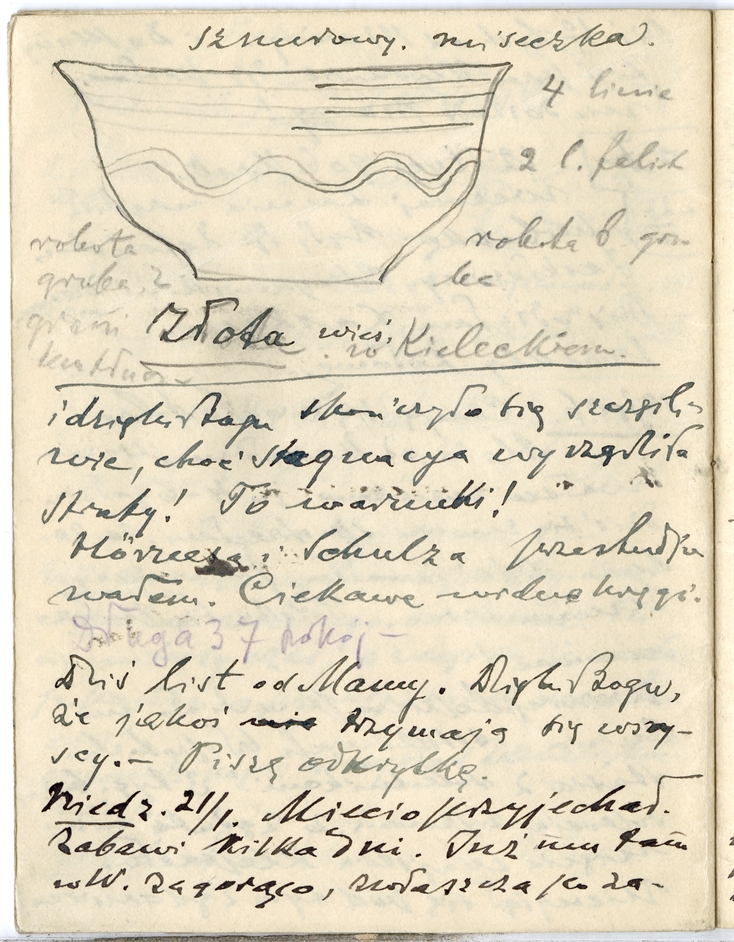 sznurowy. miseczka.
4 linie
2 l. falist
robota b. gru-
ba
robota
gruba z
Złota wieś.
w Kieleckiem.
i dzięki Bogu skończyło się szczęśli-
wie, choć stagnacya wyrządziła
straty! To warunki!
i Schulza przestudjo
wałem. Ciekawe
Długa 37 pokój –
Dziś list od Mamy. Dzięki Bogu,
że jakoś nie trzymają się wszy-
scy. – Piszę odkrytkę.
Niedz. 21/1. Miecio przyjechał.
Zabawi kilka dni. Już mu tam
w W. za gorąco, zwłaszcza po za-